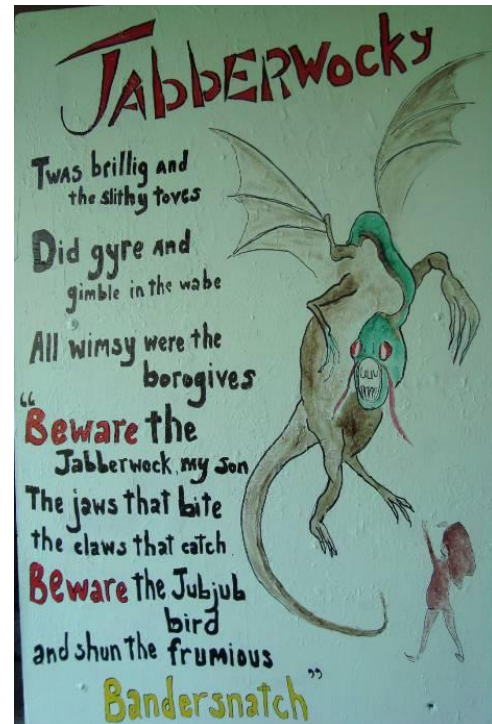 JABBERWOCKY
TWAS brillig AND
the slithy toves
Did gyre AND
gimble in the wabe
All wimsy were the
borogives
"Beware the
Jabberwock, my son
The jaws that bite
the claws that catch
Beware the Jubjub
bird
and shun the frumious
Bandersnatch"